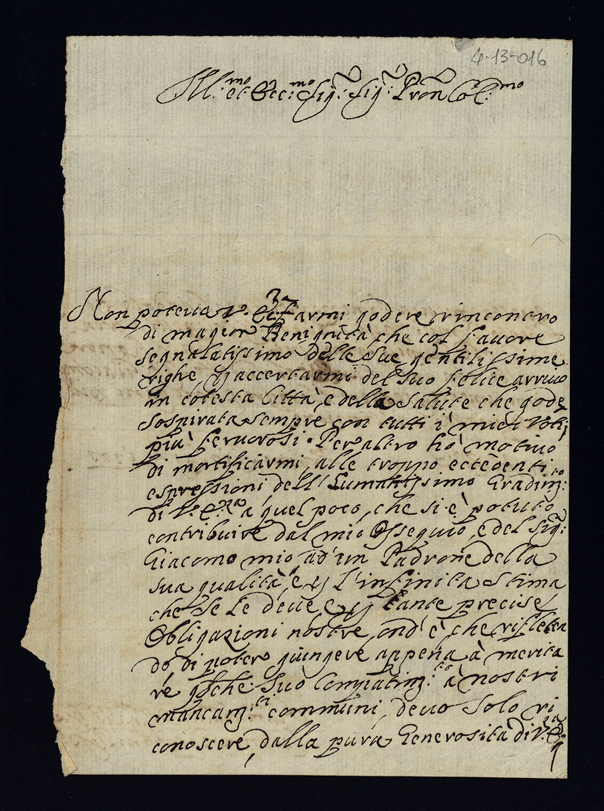 4-13-016
Ill:mo et Ecc:mo Sig:r Sig:r Pron Col:mo
Non poteua V. Ecc.za farmi godere rincontro
di magior Benignità che col fauore
segnalatissimo delle sue gentilissime
righe p accertarmi del suo felice arriuo
in cotesta Città, e della Salute che gode
sospirata sempre con tutti i miei Voti
più feruorosi. Per altro hò motiuo
di mortificarmi, alle troppo eccedenti
espressioni dell' Humanissimo Gradim:to
di V. Ecc.za a quel poco, che si è potuto
contribuire dal mio Ossequio, e del Sig:r
Giacomo mio ad' un Padrone della
sua qualità, e p l'infinita stima
che se le deue, e p tante precise
Obligazioni nostre, ond' è che rifleten
do di potere giungere appena à merita
re qlche Suo Compatim:to a nostri
mancam:ti communi, deuo solo ri
conoscere, dalla pura Generosità di V. Ecc.za